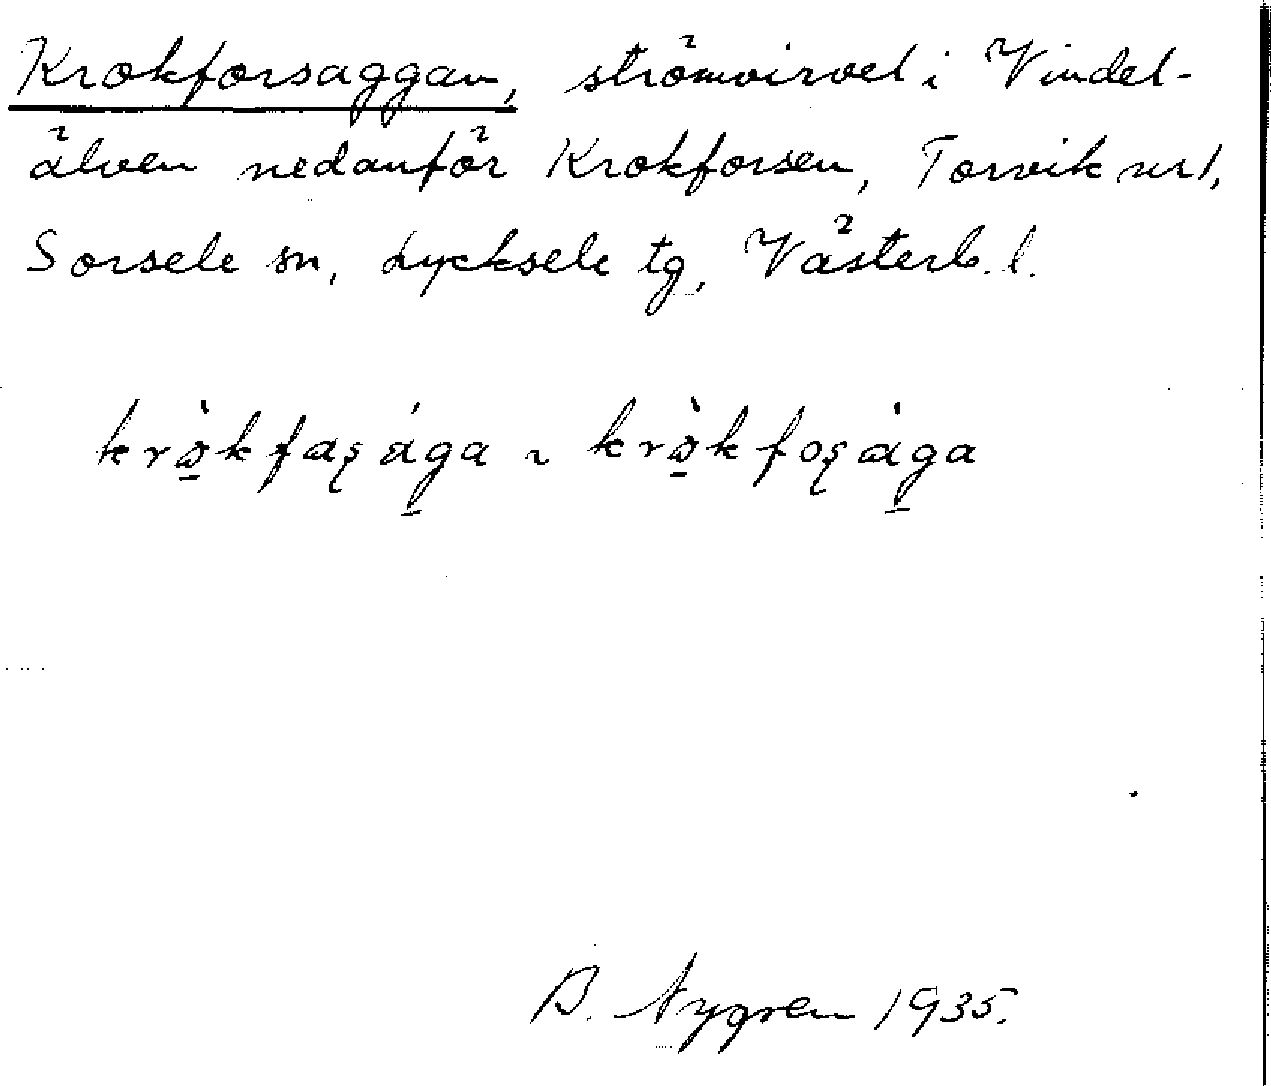 Krokforsaggan, strömvirvel i Vindel-
älven nedanför Krokforsen, Torvik nr 1,
Sorsele sn, Lycksele tg, Västerb. l.
krò̠kfaʂága̠ ~ krò̠kfoʂàga̠
B. Nygren 1935.